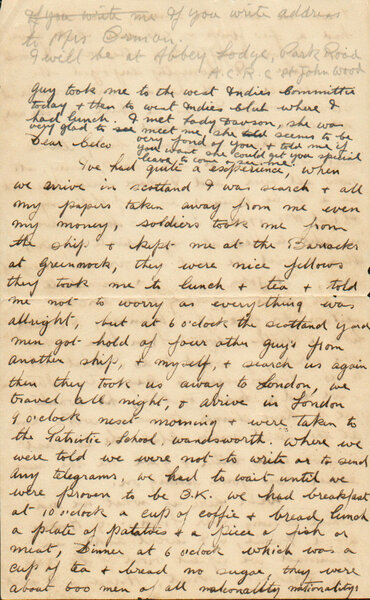 If you write me If you write address
to Mrs Orman.
I will be at Abbey Lodge, Park Road
N.W.8 St John Wood
Guy took me to the west Indies Committee
today & then to west Indies Club where I
had lunch. I met Lady Davson, she was
very glad to see meet me, she told seems to be
very fond of you, & told me if
you want she could get you special
leave to come & see me.
Dear Celco
I've had quite a experience, when
we arrive in scotland I was search & all
my papers taken away from me even
my money, soldiers took me from
the ship & kept me at the Barracks
at Greenock, they were nice fellows
they took me to lunch & tea & told
me not to worry as everything was
allright, but at 6 o'clock the scotland yard
men got hold of four other guy's from
another ship, & myself, & search us again
then they took us away to London, we
travel all night, & arrive in London
9 o'clock next morning & were taken to
the Patriotic, School, wandsworth. Where we
were told we were not to write or to send
any telegrams, we had to wait until we
were proven to be O.K. we had breakfast
at 10 o'clock a cup of coffie & bread, lunch
a plate of patatoes & a piece of fish or
meat, Dinner at 6 o'clock which was a
cup of tea & bread no sugar, they were
about 600 men of all nationality nationality's